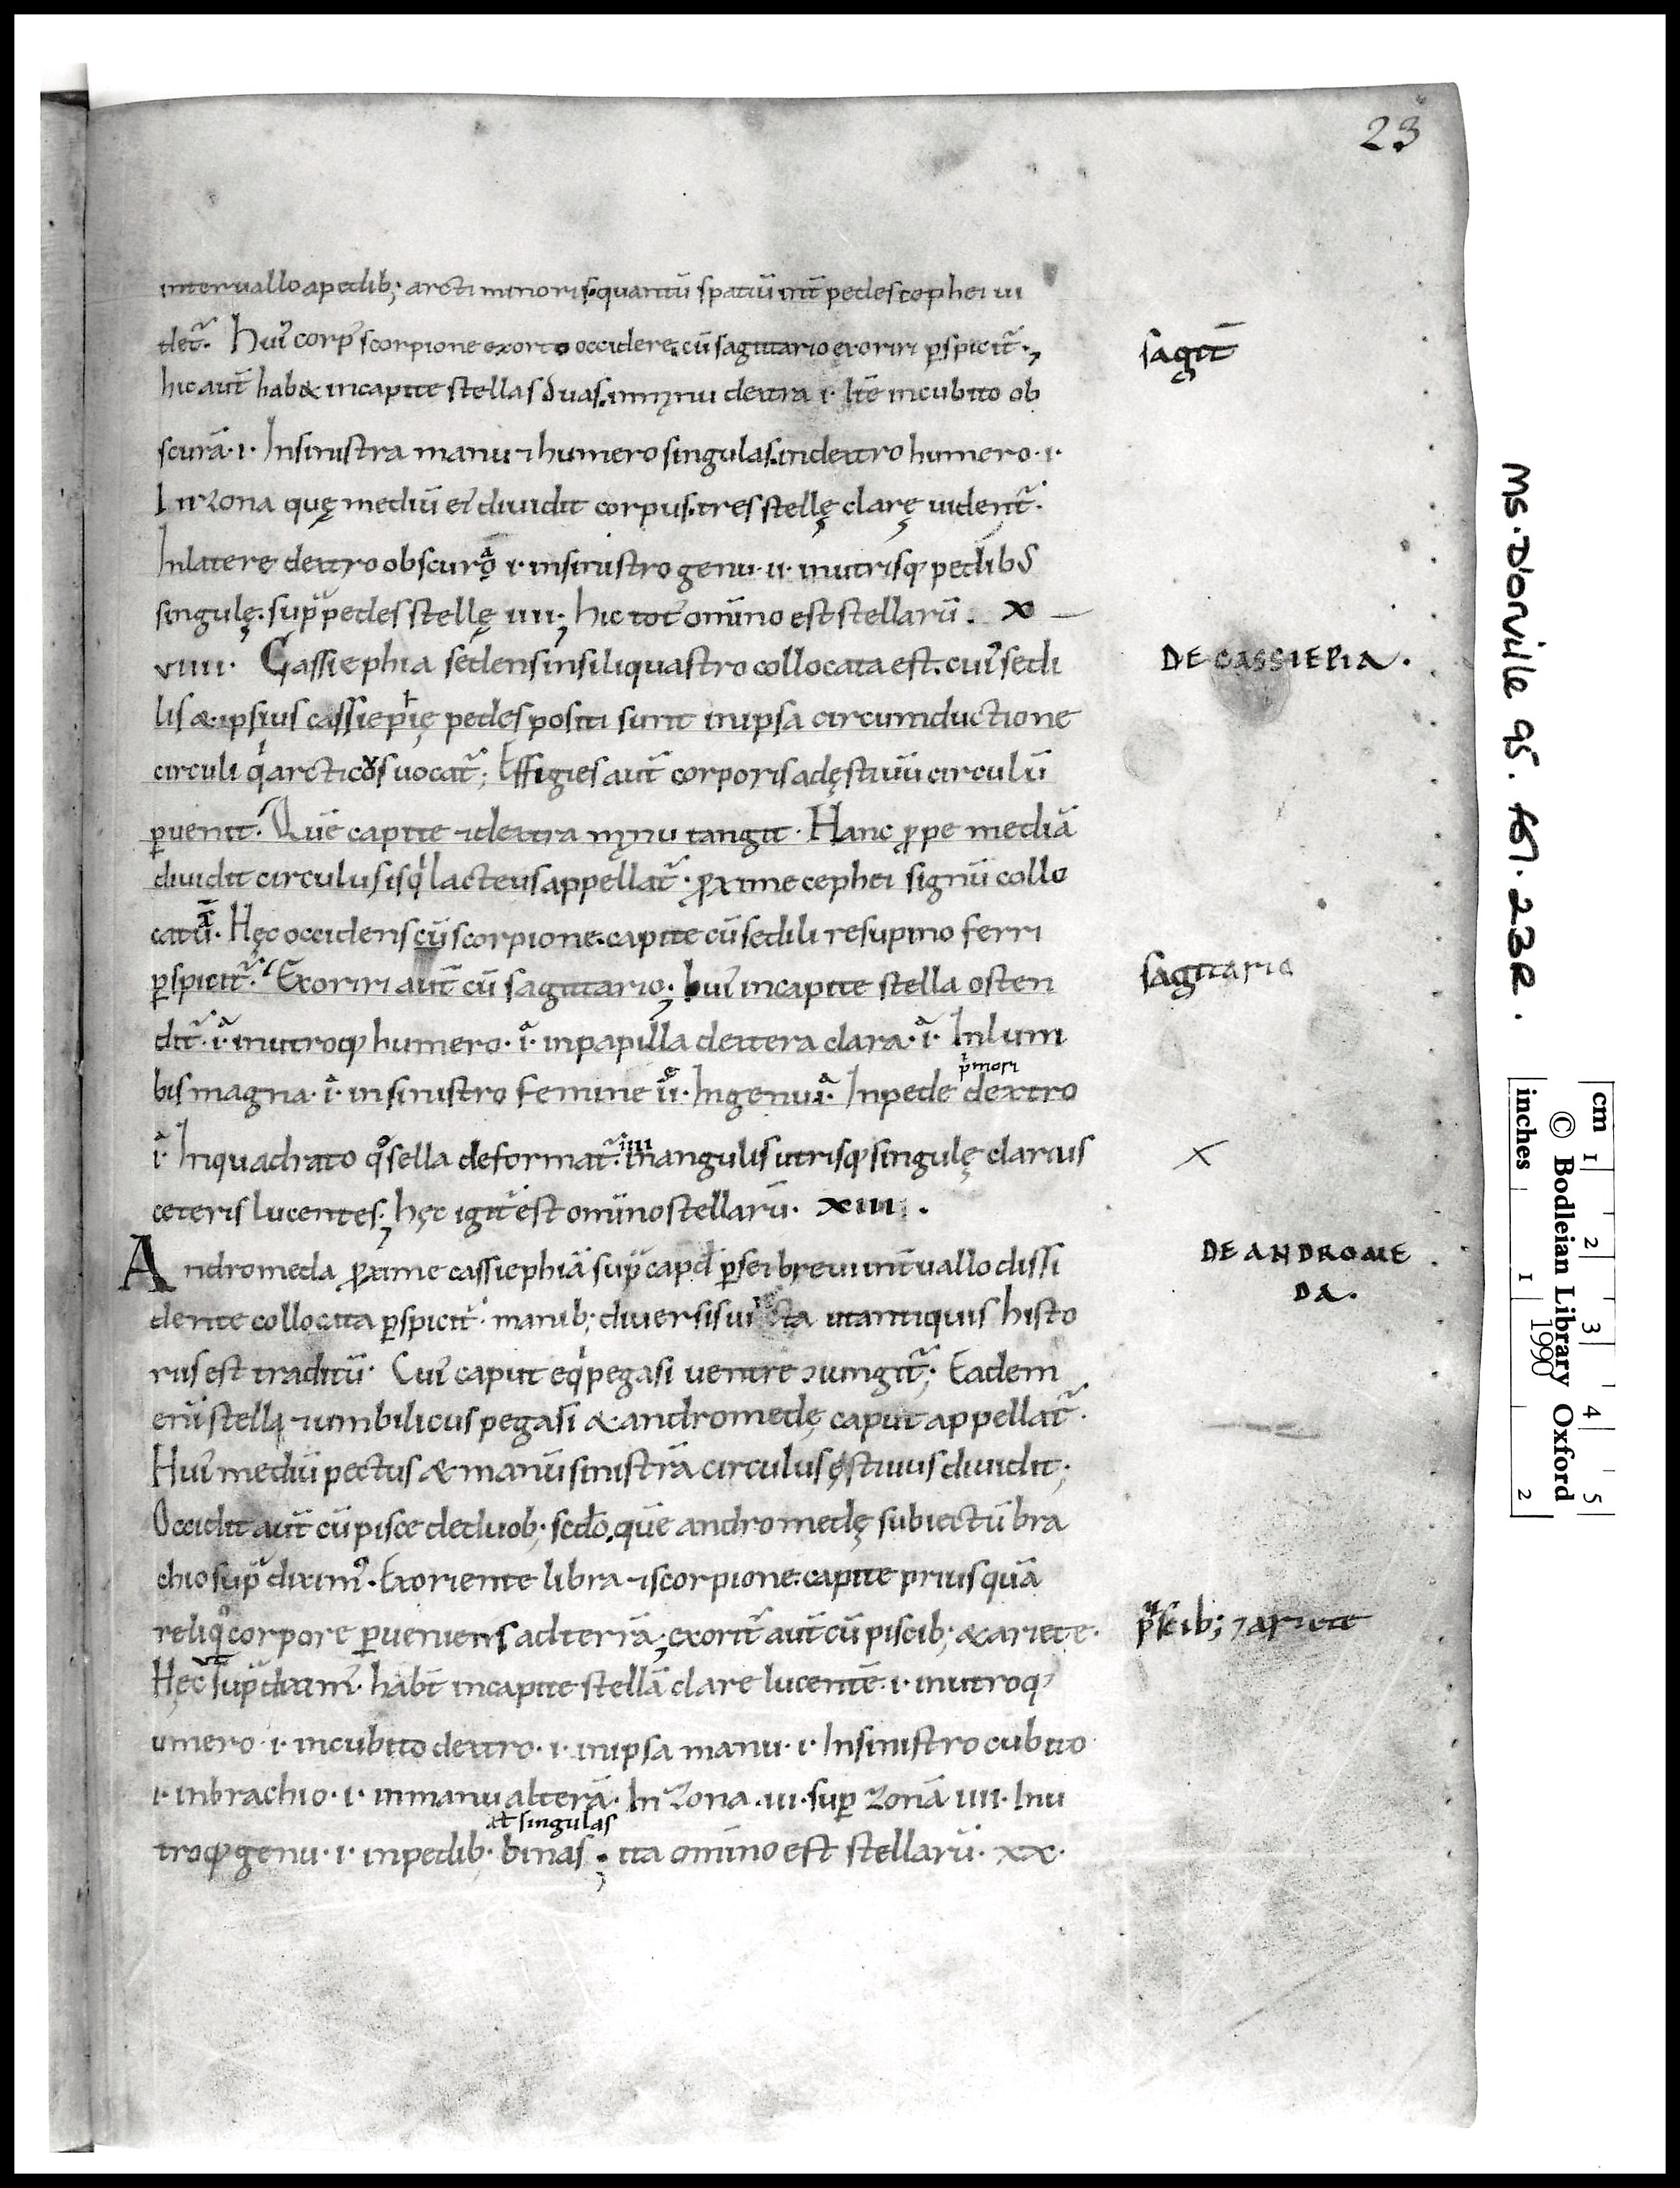 23
interuallo a pedib; arcti minoris. quantū spatiū int̄ pedes cephei ui
det᷑. Hui᾽ corp᾽ scorpione exorto occidere. cū sagittario exoriri ꝑspicit᷑.,
sagit̄
hic aut̄ hab& in capite stellas duas. in manu dextra .i. Itē in cubito ob
scurā .i. In sinistra manu ⁊ humero singulas. in dextro humero .i.
In zona quę mediū ei᾽ diuidit corpus. tres stellę clarę uident᷑.
In latere dextro obscurą .i. in sinistro genu .ii. in utrisq; pedibus
singulę. supͣ pedes stellę iiii; hic tot᾽ omīno est stellarū. X
VIIII. Cassiephia sedens in siliquastro collocata est. cui᾽ sedi
DE CASSIEPIA.
lis & ipsius cassiepię pedes positi sunt in ipsa circumductione
circuli qͥ arcticos uocat᷑; Effigies aut̄ corporis ad ęstiuū circulū
ꝑuenit. Quē capite ⁊ dextra manu tangit. Hanc ꝓpe mediā
diuidit circulus is qͥ lacteus appellat᷑. ꝓxime cephei signū collo
catū. Hęc occidens cū scorpione. capite cū sedili resupino ferri
ꝑspicit᷑. Exoriri aut̄ cū sagittario; hui᾽ in capite stella osten
sagittario
dit᷑ .iͣ. in utroq; humero .iͣ. in papilla dextera clara .iͣ. In lum
bis magna .iͣ. in sinistro femine .ii. In genu .iͣ. In pede dextro
pͥmori
.iͣ. In quadrato qͦ sella deformat᷑. in angulis utrisq; singulę clarius
X
ceteris lucentes; hęc igit᷑ est omīno stellarū. XIII.
Andromeda ꝓxime cassiephiā supͣ capđ ꝑsei breui int̄uallo dissi
DE ANDROME
DA.
dente collocata ꝑspicit᷑. manib; diuersis uincta ut antiquis histo
riis est traditū. Cui᾽ caput eqͥ pegasi uentre ↄiungit᷑; Eadem
eni stella ⁊ umbilicus pegasi & andromedę caput appellat᷑.
Hui᾽ mediū pectus & manū sinistrā circulus ęstiuus diuidit;
Occidit aut̄ cū pisce de duob; scđo. quē andromedę subiectū bra
chio supͣ dixim᾽. Exoriente libra ⁊ scorpione. capite prius quā
reliqͦ corpore ꝑueniens ad terrā; exorit᷑ aut̄ cū piscib; & ariete.
piscib; ⁊ ariete
Hęc ut supͣ dixim᾽. habt̄ in capite stellā clare lucentē .i. in utroq;
umero .i. in cubito dextro .i. in ipsa manu .i. In sinistro cubito
.i. in brachio .i. in manu alterā. In zona .iii. suꝑ zonā iiii. In u
at̄ singulas
troq; genu .i. in pedib. binas; ita omīno est stellarū. XX.
Ms. D'orville 95. fol. 23R.
cm 1 2 3 4 5
© Bodleian Library Oxford
1990
inches 1 2